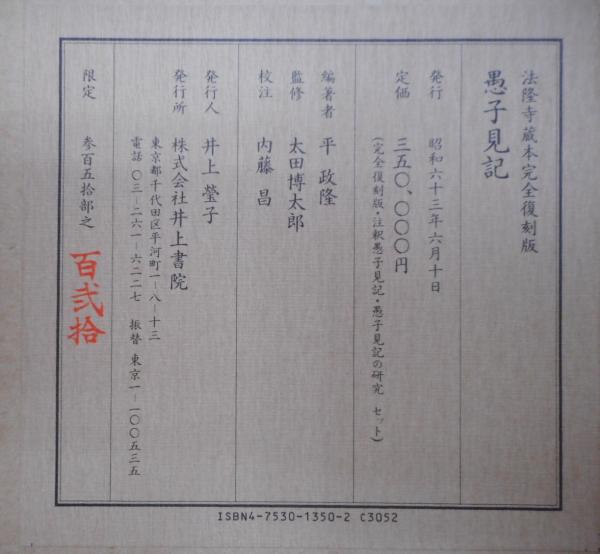 法隆寺蔵本完全復刻版
愚子見記
発行 昭和六十三年六月十日
定価 三五〇、〇〇〇円
(完全復刻版・注釈愚子見記・愚子見記の研究 セット)
編著者 平 政隆
監修 太田博太郎
校注 内藤 昌
発行人 井上瑩子
発行所 株式会社井上書院
東京都千代田区平河町一ー八ー十三
電話 〇三ー二六一ー六二二七 振替 東京一ー一〇〇五三五
限定 参百五拾部之 百弐拾
ISBN4-7530-1350-2 C3052